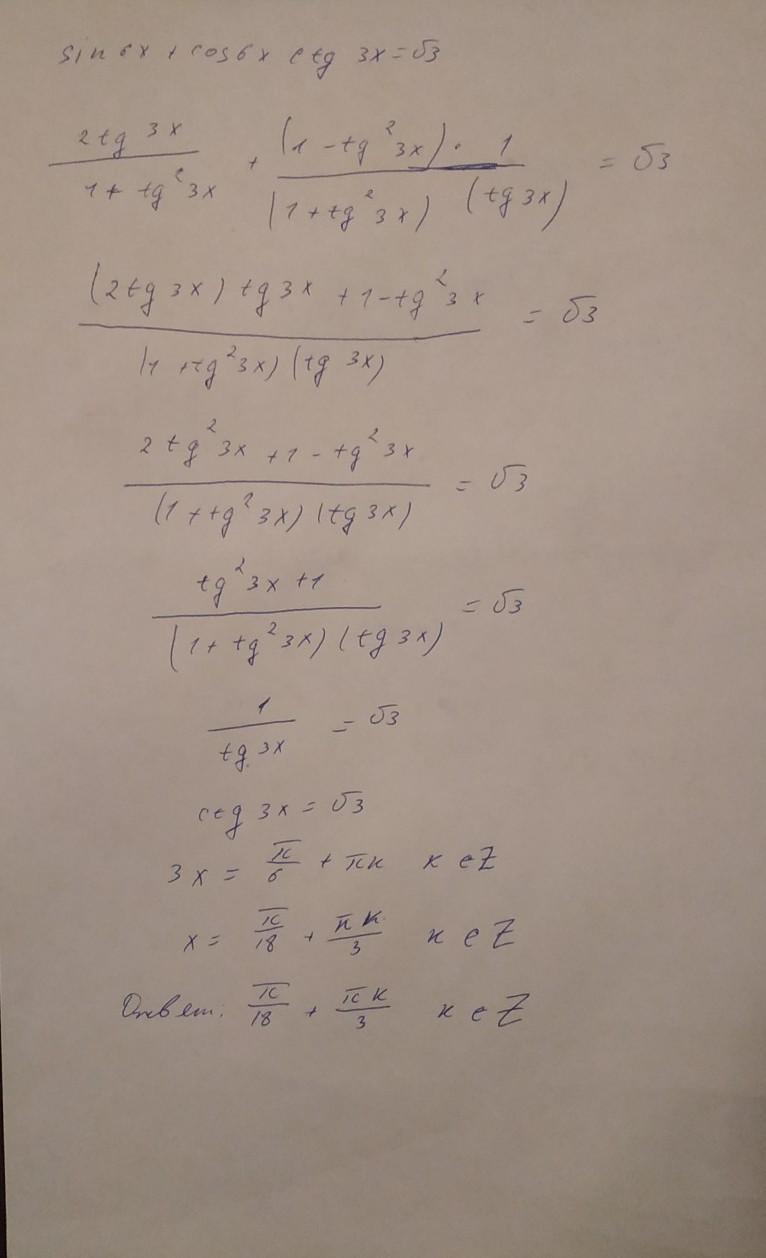 sin 6x + cos 6x ctg 3x = √3
2tg 3x / 1 + tg²3x + (1 - tg²3x) · 1 / (1 + tg²3x) (tg 3x) = √3
(2tg 3x) tg 3x + 1 - tg²3x / (1 + tg²3x) (tg 3x) = √3
2 tg²3x + 1 - tg²3x / (1 + tg²3x) (tg 3x) = √3
tg²3x + 1 / (1 + tg²3x) (tg 3x) = √3
1 / tg 3x = √3
ctg 3x = √3
3x = π/6 + πк к ∈ Z
x = π/18 + πк/3 к ∈ Z
Ответ: π/18 + πк/3 к ∈ Z